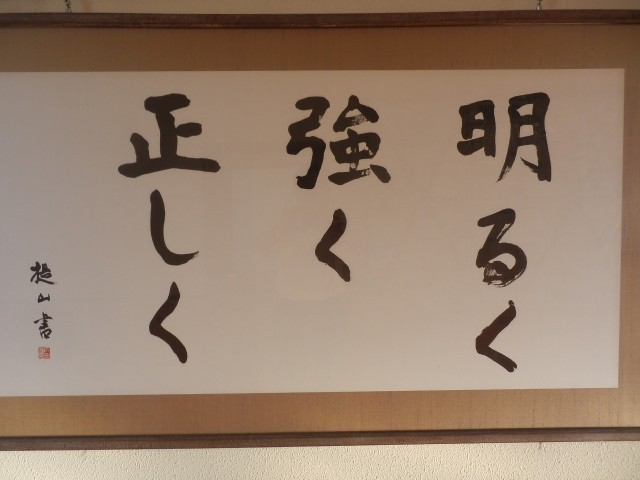 明るく
強く
正しく
提山書